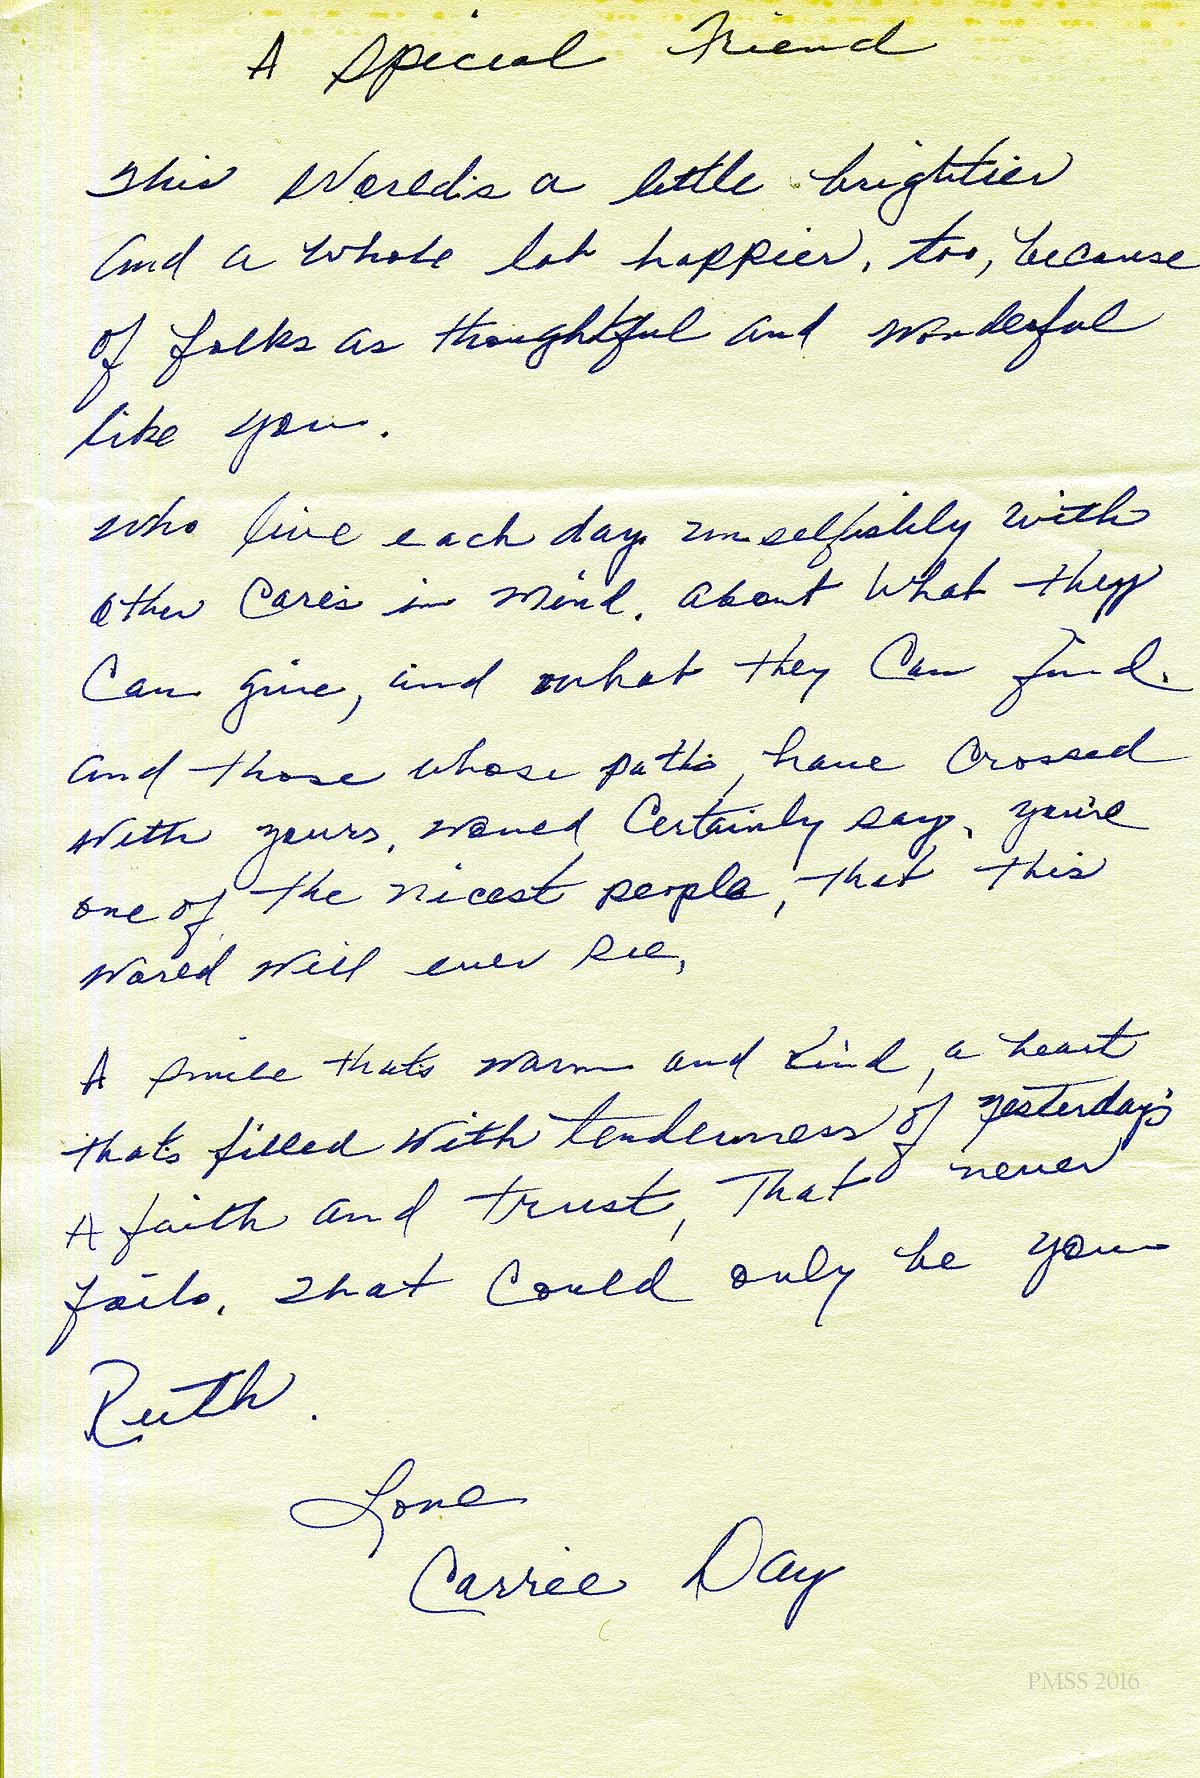 A Special Friend
This World's a little brightier
and a whole lot happier, too, because
of folks as thoughtful and wonderful
like you.
who live each day unselfishly with
other cares in mind. about what they
can give, and what they can find.
and those whose paths, have crossed
with yours, would certainly say, you're
one of the nicest people, that this
world will ever see,
A smile that's warm and kind, a heart
that's filled with tenderness of yesterday's
A faith and trust, That never
fails. That could only be you
Ruth.
Love
Carrie Day
PMSS 2016